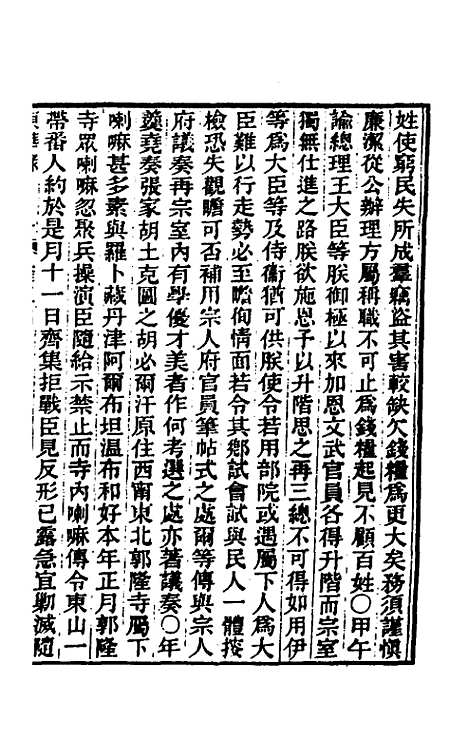 姓使窮民失所成羣竊盜其害較缺欠錢糧爲更大矣務須謹愼
廉潔從公辦理方屬稱職不可止爲錢糧起見不顧百姓〇甲午
諭總理王大臣等朕御極以來加恩文武官員各得升階而宗室
獨無仕進之路朕欲施恩予以升階思之再三總不可得如用伊
等爲大臣等及侍衞猶可供朕使令若用部院或遇屬下人爲大
臣難以行走勢必至瞻徇情面若令其鄉試會試與民人一體按
檢恐失觀瞻可否補用宗人府官員筆帖式之處爾等傳與宗人
府議奏再宗室內有學優才美者作何考選之處亦著議奏〇年
羹堯奏張家胡土克圖之胡必爾汗原住西甯東北郭隆寺屬下
喇嘛甚多素與羅卜藏丹津阿爾布坦溫布和好本年正月郭隆
寺眾喇嘛忽聚兵操演臣隨給示禁止而寺內喇嘛傳令東山一
帶番人約於是月十一日齊集拒戰臣見反形已露急宜勦滅隨